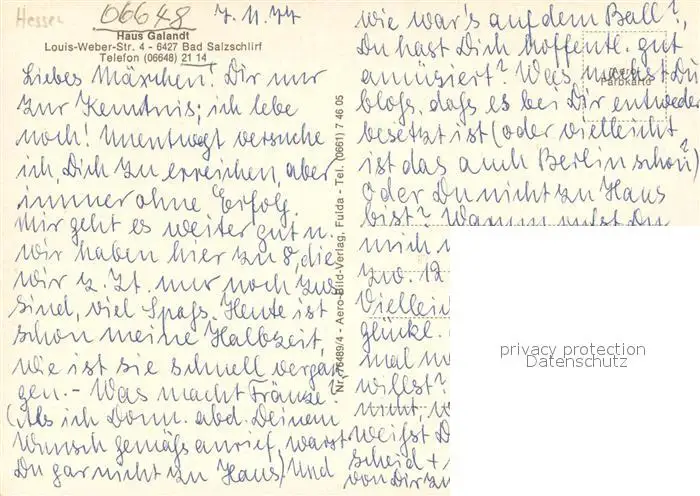 Hessen
06648
7.11.77
Haus Galandt
Louis-Weber-Str. 4 - 6427 Bad Salzschlirf
Telefon (06648) 21 14
Liebes Märchen! Dir nur
zur Kenntnis; ich lebe
noch! Unentwegt versuche
ich, Dich zu erreichen, aber
immer ohne Erfolg.
Mir geht es weiter gut u.
wir haben hier zu 8, die
wir z. Zt. nur noch zus.
sind, viel Spaß. Heute ist
schon meine Halbzeit,
wie ist sie schnell vergan
gen. - Was macht Fränze?
(Als ich Donn. abd. Deinem
Wunsch gemäß anrief, warst
Du gar nicht zu Haus) Und
Nr. 76489/4 - Aero-Bild-Verlag, Fulda - Tel. (0661) 7 46 05
wie war's auf dem Ball?,
Du hast Dich hoffentl. gut
amüsiert? Was machst Du
bloss, dass es bei Dir entweder
besetzt ist (oder vielleicht
ist das auch Berlin schon?)
oder Du nicht zu Haus
bist? Warum rufst Du
mich
zw. 12
Vielleich
glückl.
mal
willst?
nicht, w
weißt D
scheid +
von Dir zu
Farbkarte
privacy protection
Datenschutz